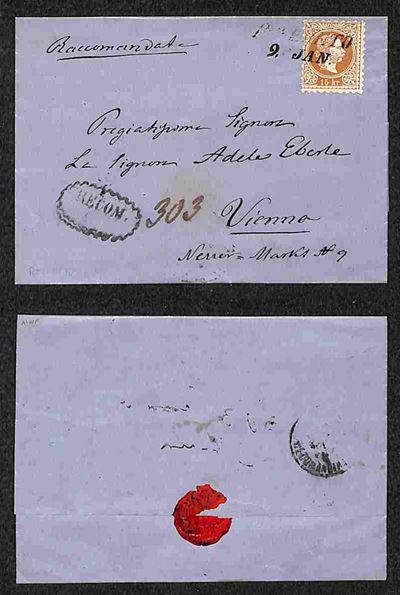 Raccomandata
9. JAN.
15 kr.
Pregiatissma Signora
La Signora Adele Eberle
RECOM.
303
Vienna
Neuer=Markt № 9